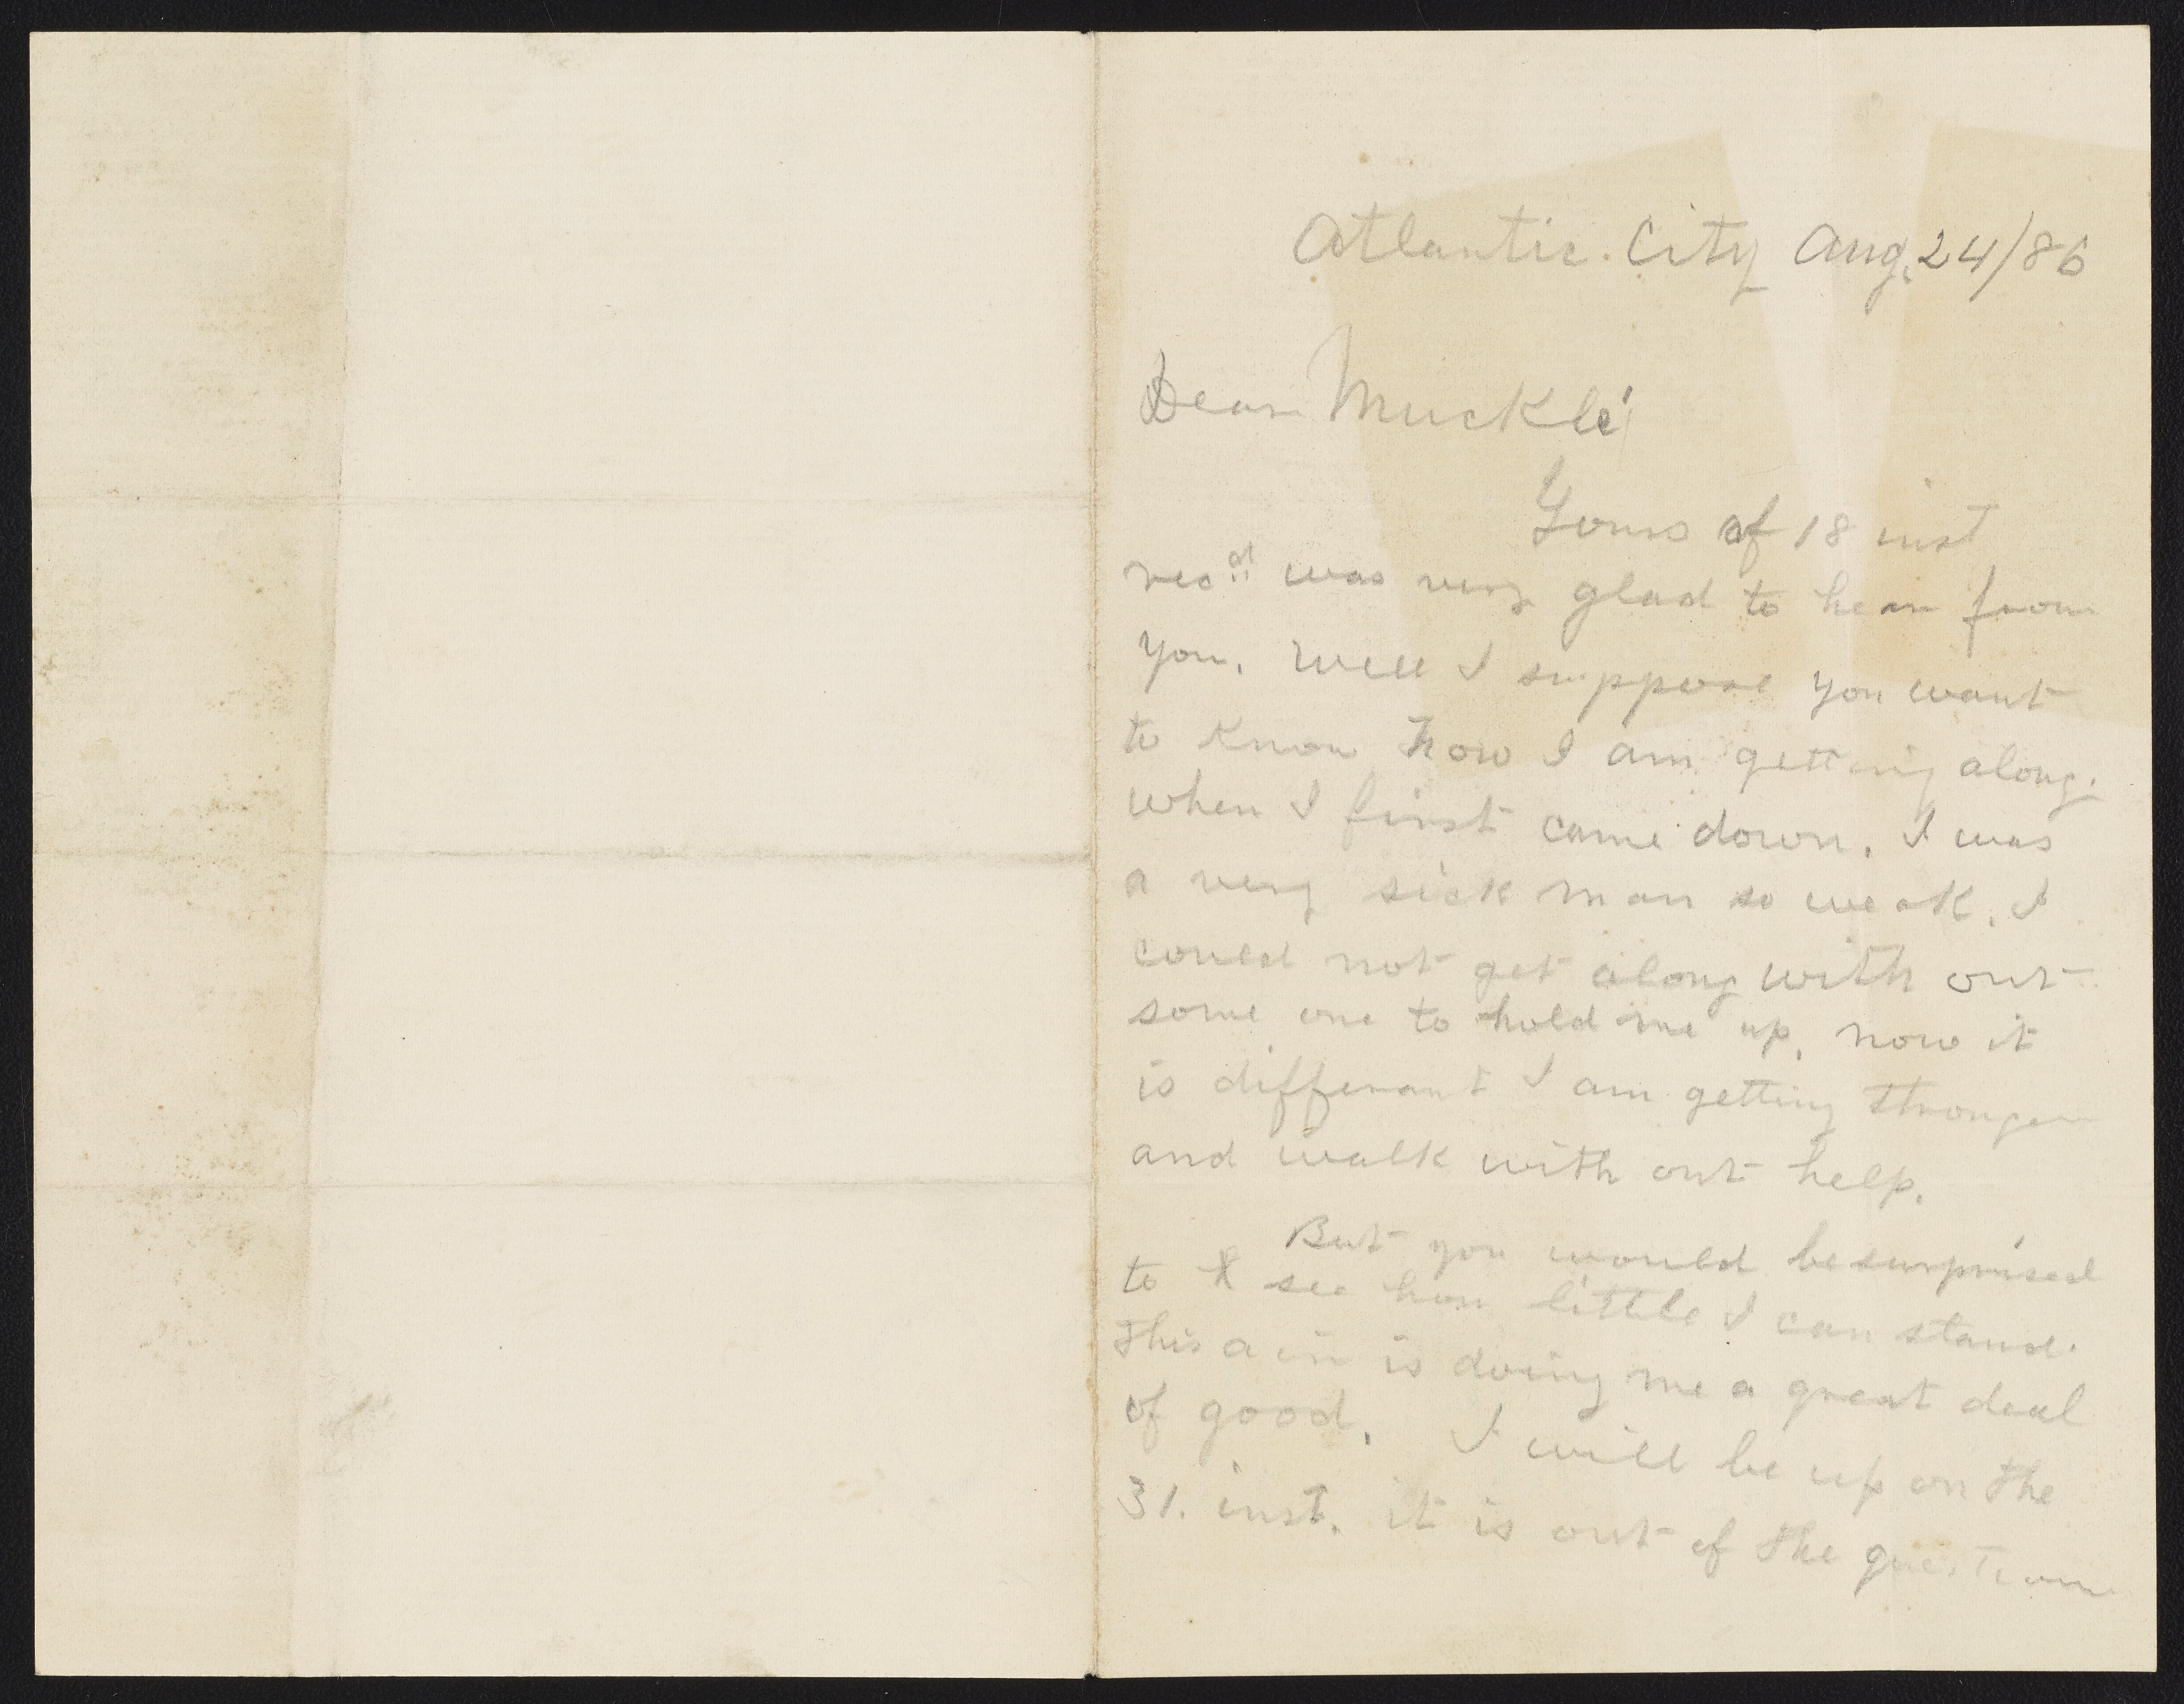 Atlantic. City Aug. 24/86
Dear Mucklé
Yours of 18 inst
recd was very glad to hear from
you. Well I suppose you want
to know how I am getting along.
when I first came down. I was
a very sick man so weak. I
could not get along with out
some one to hold me up. now it
is differant I am getting stronger
and walk with out help.
But you would be surprised
to see how little I can stand.
This air is doing me a great deal
of good. I will be up on the
31. inst. it is out of the question